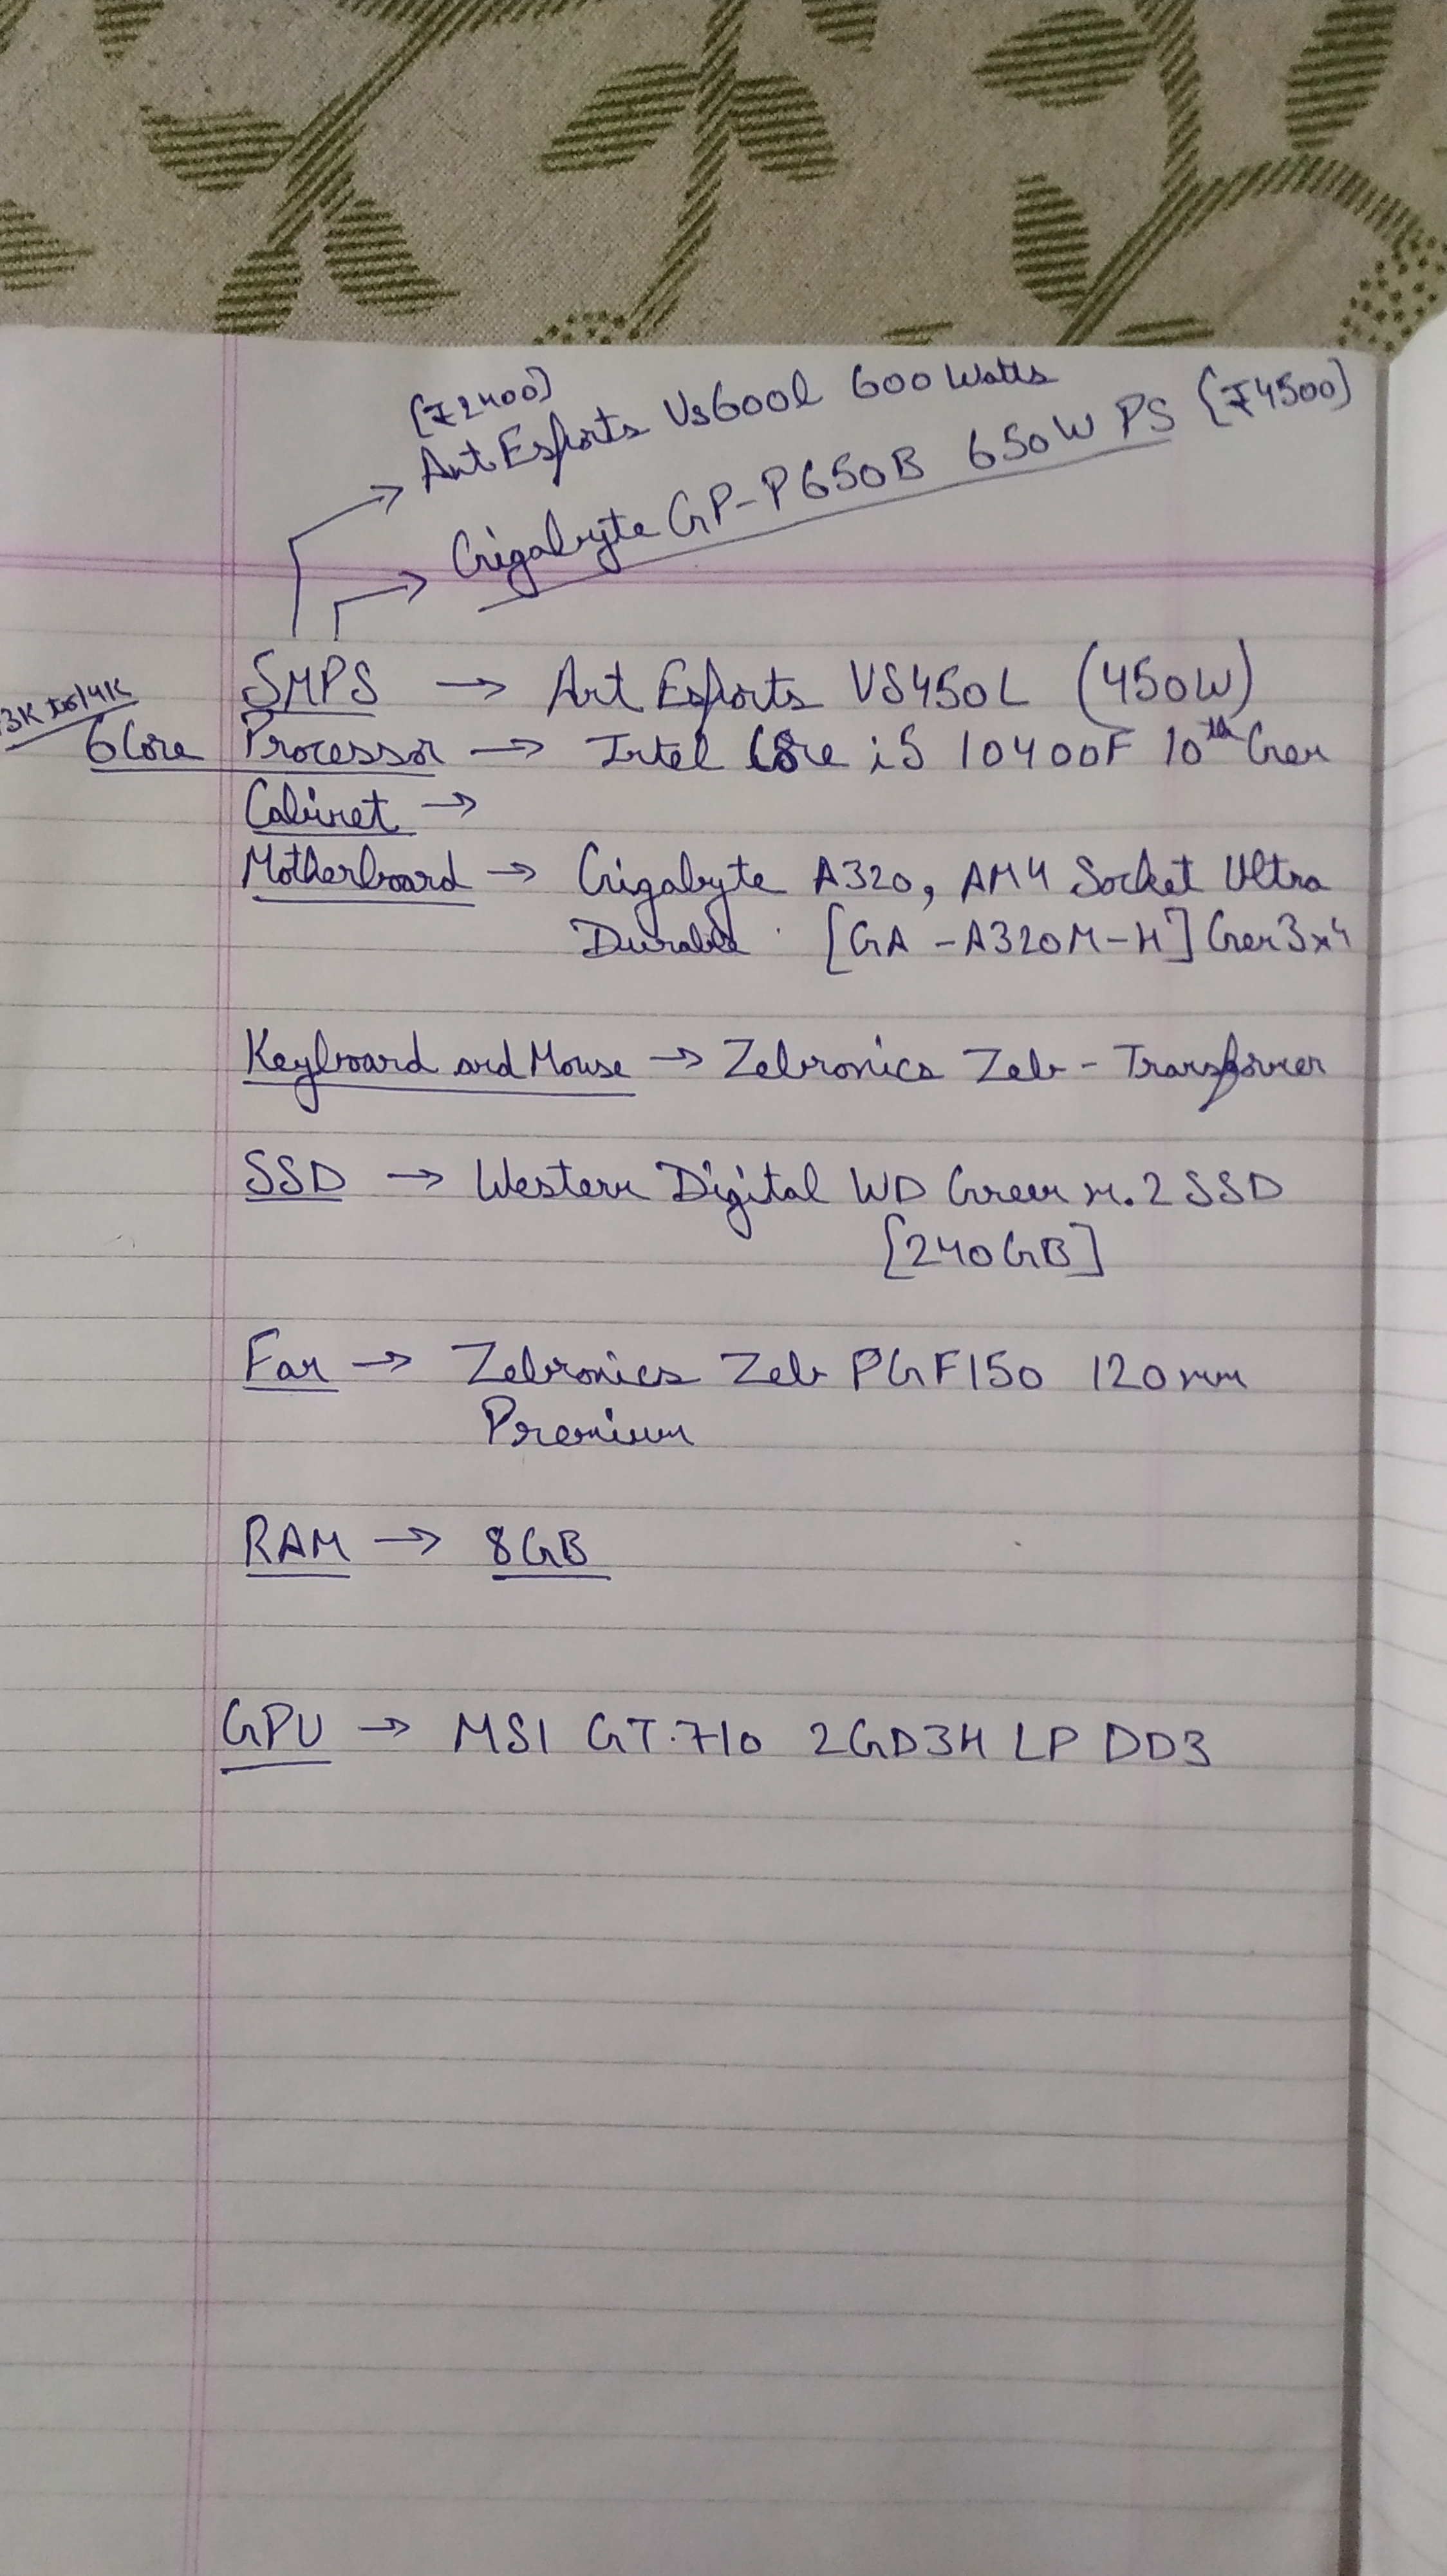 [₹2400]
Ant Esports Vs600l 600 Watts
Gigabyte GP-P650B 650W PS [₹4500]
SMPS → Ant Esports VS450L (450W)
3K to 14K
6 Core Processor → Intel Core i5 10400F 10th Gen
Cabinet →
Motherboard → Gigabyte A320, AM4 Socket Ultra
Durable [GA-A320M-H] Gen3x4
Keyboard and Mouse → Zebronics Zeb-Transformer
SSD → Western Digital WD Green M.2 SSD
[240GB]
Fan → Zebronics Zeb PGF150 120mm
Premium
RAM → 8GB
GPU → MSI GT.710 2GD3H LP DD3